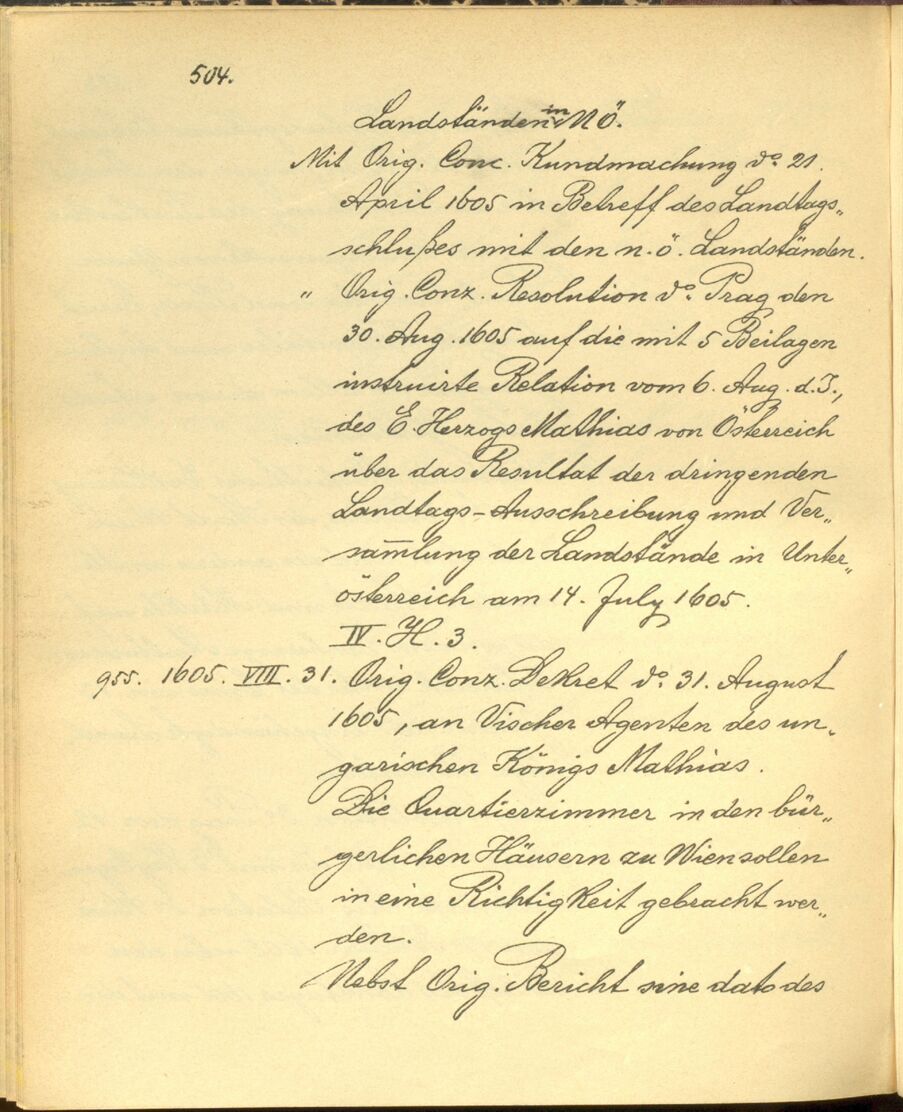 504.
Landständen in NÖ.
Mit Orig. Conc. Kundmachung do. 21.
April 1605 in Betreff des Landtags„
schlußes mit den n.ö. Landständen.
„ Orig. Conz. Resolution do. Prag den
30. Aug. 1605 auf die mit 5 Beilagen
instruirte Relation vom 6. Aug. d.J.,
des E. Herzogs Mathias von Österreich
über das Resultat der dringenden
Landtags-Ausschreibung und Ver„
sam̄lung der Landstände in Unter„
österreich am 14. July 1605.
IV. H. 3.
955. 1605. VIII. 31. Orig. Conz. Dekret do. 31. August
1605, an Vischer Agenten des un„
garischen Königs Mathias.
Die Quartierzimmer in den bür„
gerlichen Häusern zu Wien sollen
in eine Richtigkeit gebracht wer„
den.
Nebst Orig. Bericht sine dato des